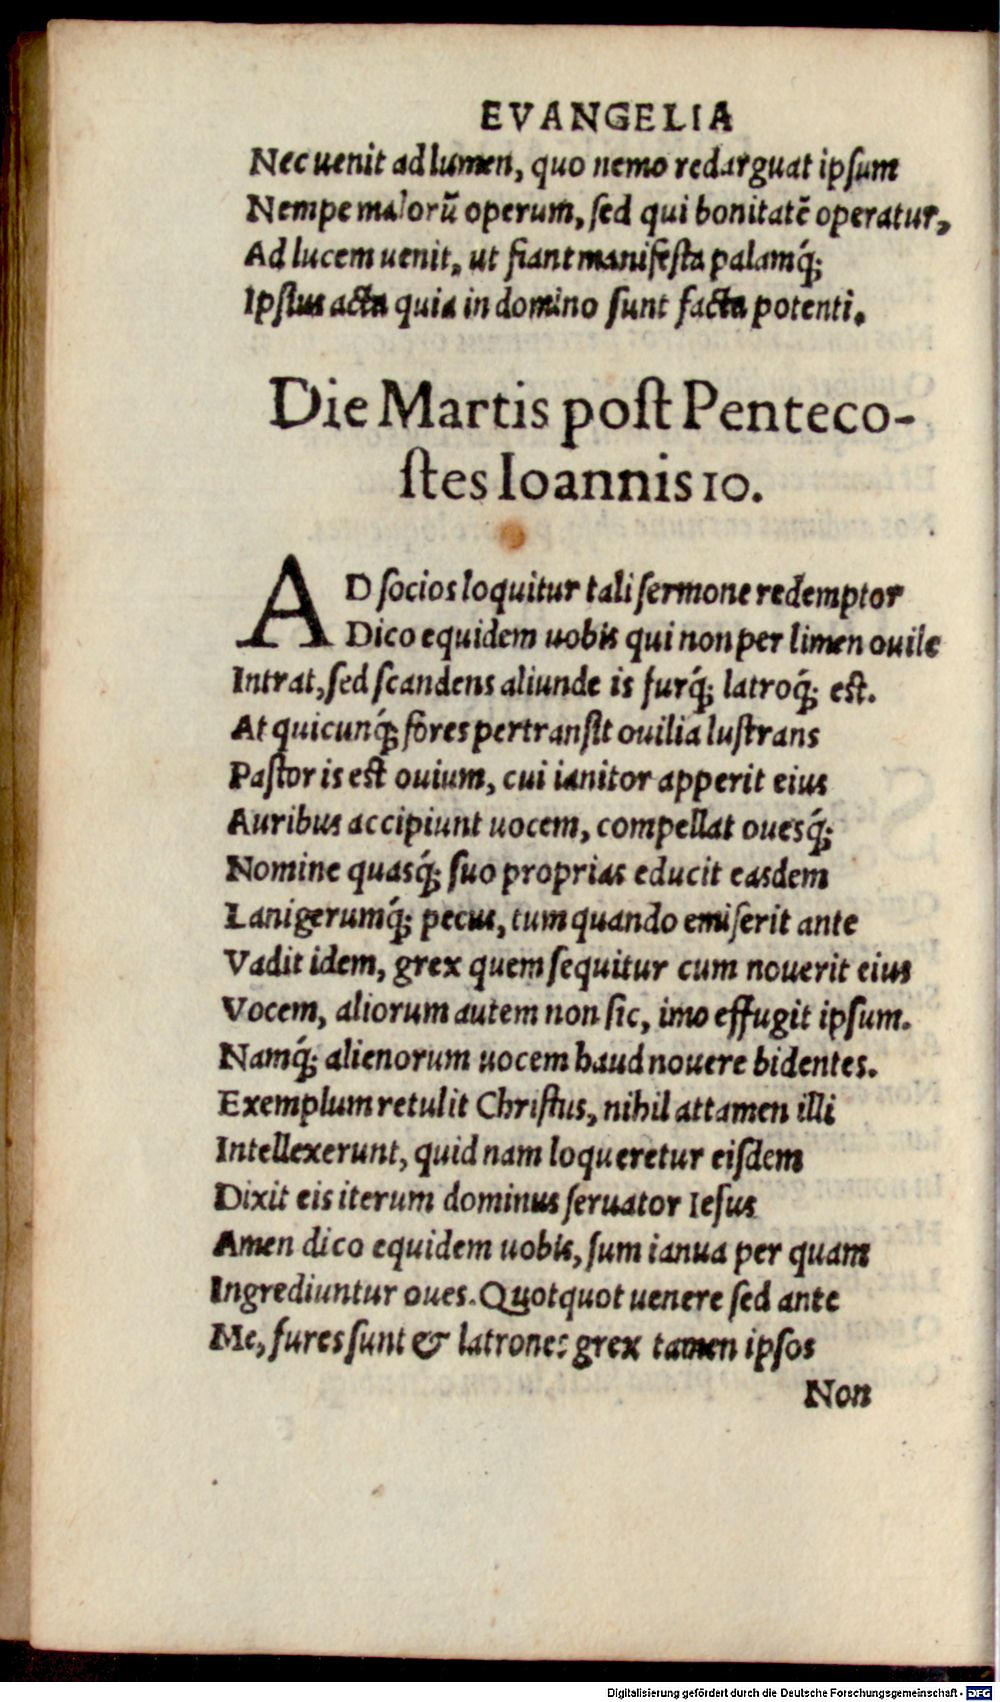 EVANGELIA
Nec uenit ad lumen, quo nemo redarguat ipſum
Nempe malorũ operum, ſed qui bonitatẽ operatur,
Ad lucem uenit, ut fiant manifeſta palamq́;
Ipſius acta quia in domino ſunt facta potenti.
Die Martis poſt Penteco-
ſtes Ioannis 10.
AD ſocios loquitur tali ſermone redemptor
Dico equidem uobis qui non per limen ouile
Intrat, ſed ſcandens aliunde is furq́; latroq́; eſt.
At quicunq́; fores pertranſit ouilia luſtrans
Paſtor is eſt ouium, cui ianitor apperit eius
Auribus accipiunt uocem, compellat ouesq́;
Nomine quasq́; ſuo proprias educit easdem
Lanigerumq́; pecus, tum quando emiſerit ante
Vadit idem, grex quem ſequitur cum nouerit eius
Vocem, aliorum autem non ſic, imo effugit ipſum.
Namq́; alienorum uocem haud nouere bidentes.
Exemplum retulit Chriſtus, nihil attamen illi
Intellexerunt, quid nam loqueretur eiſdem
Dixit eis iterum dominus ſeruator Ieſus
Amen dico equidem uobis, ſum ianua per quam
Ingrediuntur oues. Quotquot uenere ſed ante
Me, fures ſunt & latrones grex tamen ipſos
Non
Digitalisierung gefördert durch die Deutsche Forschungsgemeinschaft - DFG